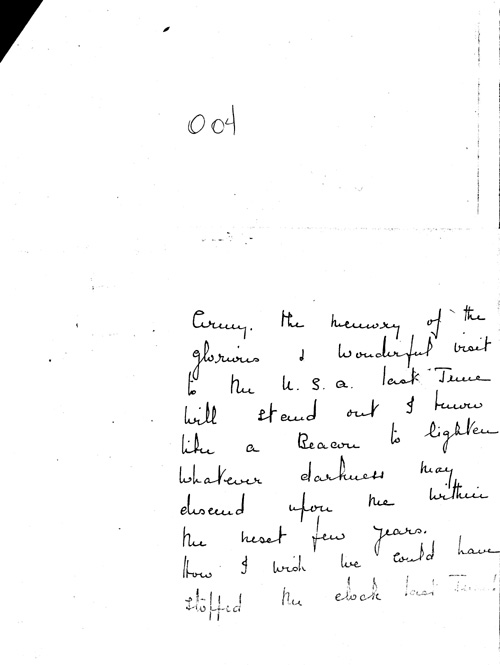 004
Army. The memory of the
glorious & wonderful visit
to the U.S.A. last June
will stand out I know
like a Beacon to lighten
whatever darkness may
descend upon me within
the next few years.
How I wish we could have
stopped the clock last June!